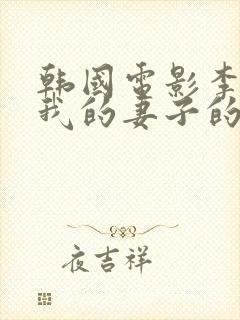 韩國电影李
我的妻子的
夜吉祥